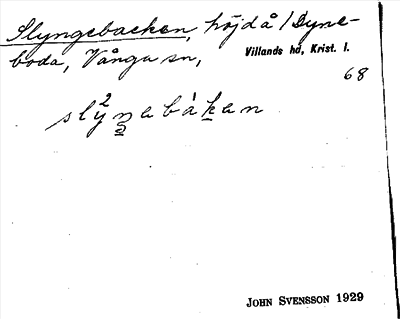 Slyngebacken, höjd å /Dyne-
boda, Vånga sn, Villands hd, Krist. l.
68
slý²ŋabàkan
JOHN SVENSSON 1929